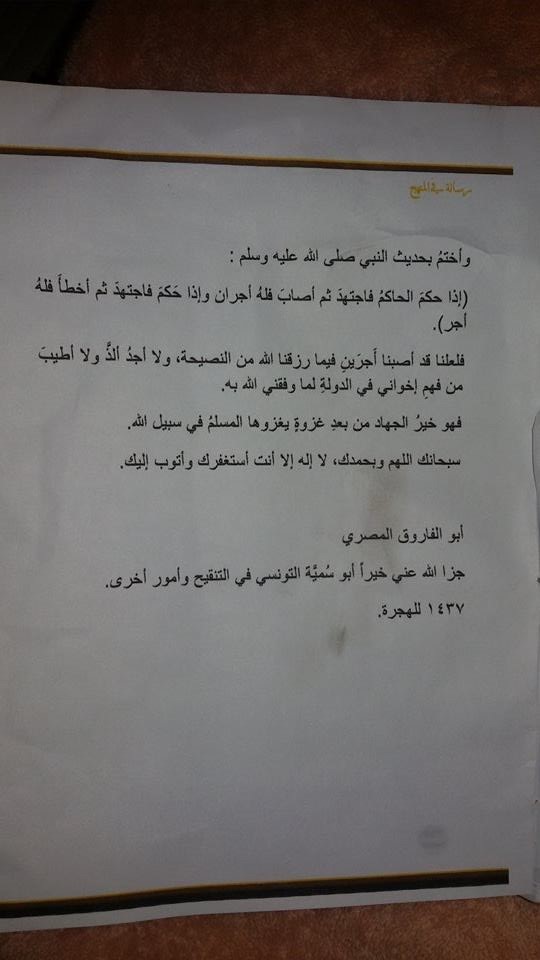 رسالة في المنهج
وأختمُ بحديث النبي صلى الله عليه وسلم :
(إذا حكمَ الحاكمُ فاجتهدَ ثم أصابَ فلهُ أجران وإذا حَكمَ فاجتهدَ ثم أخطأَ فلهُ
أجر).
فلعلنا قد أصبنا أَجرَينِ فيما رزقنا الله من النصيحة، ولا أجدُ ألذَّ ولا أطيبَ
من فهمِ إخواني في الدولةِ لما وفقني الله به.
فهو خيرُ الجهاد من بعدِ غزوةٍ يغزوها المسلمُ في سبيل الله.
سبحانك اللهم وبحمدك، لا إله إلا أنت أستغفرك وأتوب إليك.
أبو الفاروق المصري
جزا الله عني خيراً أبو سُميَّة التونسي في التنقيح وأمور أخرى.
١٤٣٧ للهجرة.